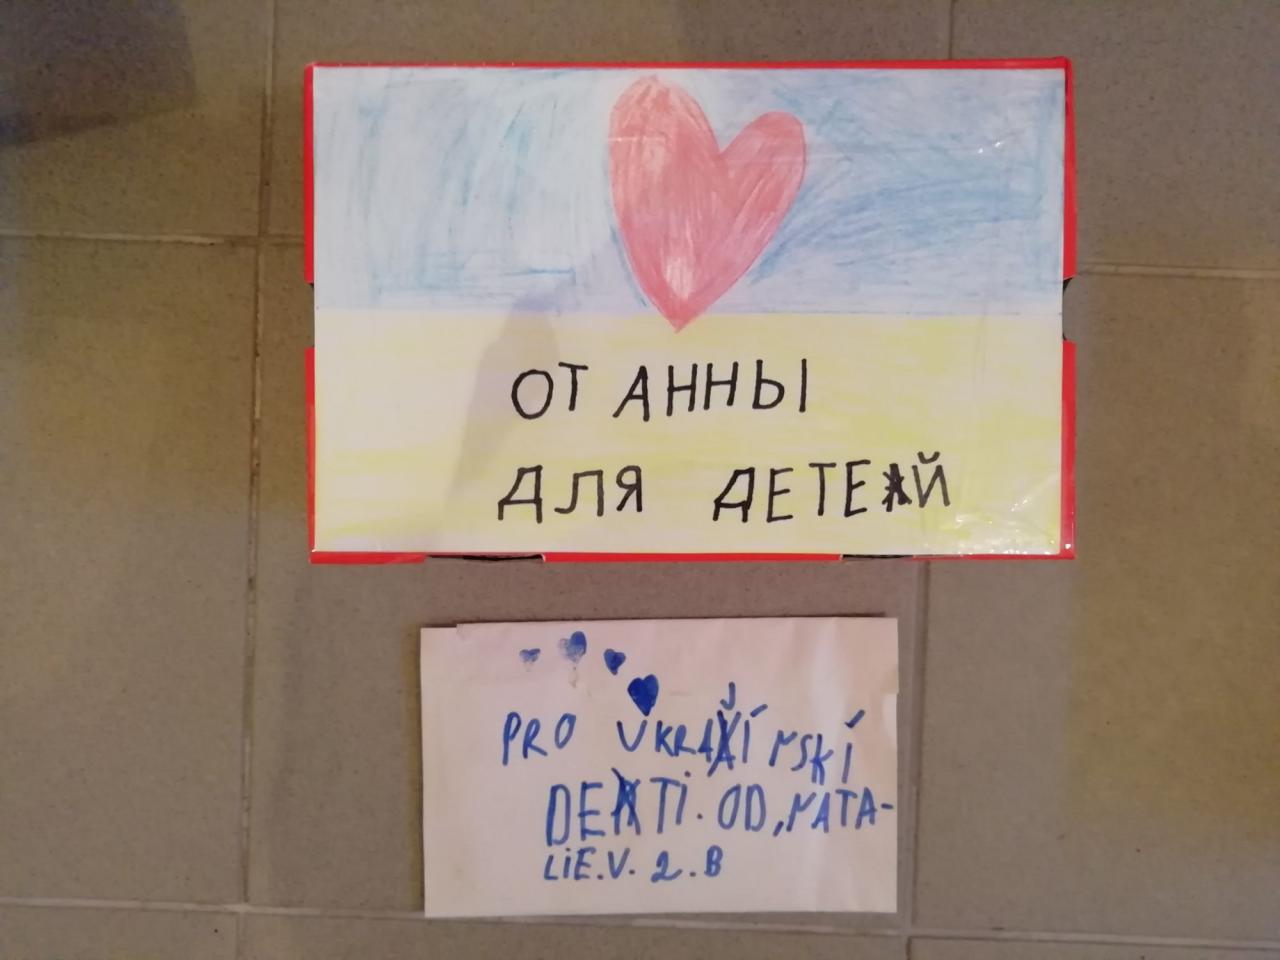 ОТ АННЫ
ДЛЯ ДЕТЕЙ
PRO UKRAÍNSKÍ
DETi. OD, NATA-
LiE.V. 2.B